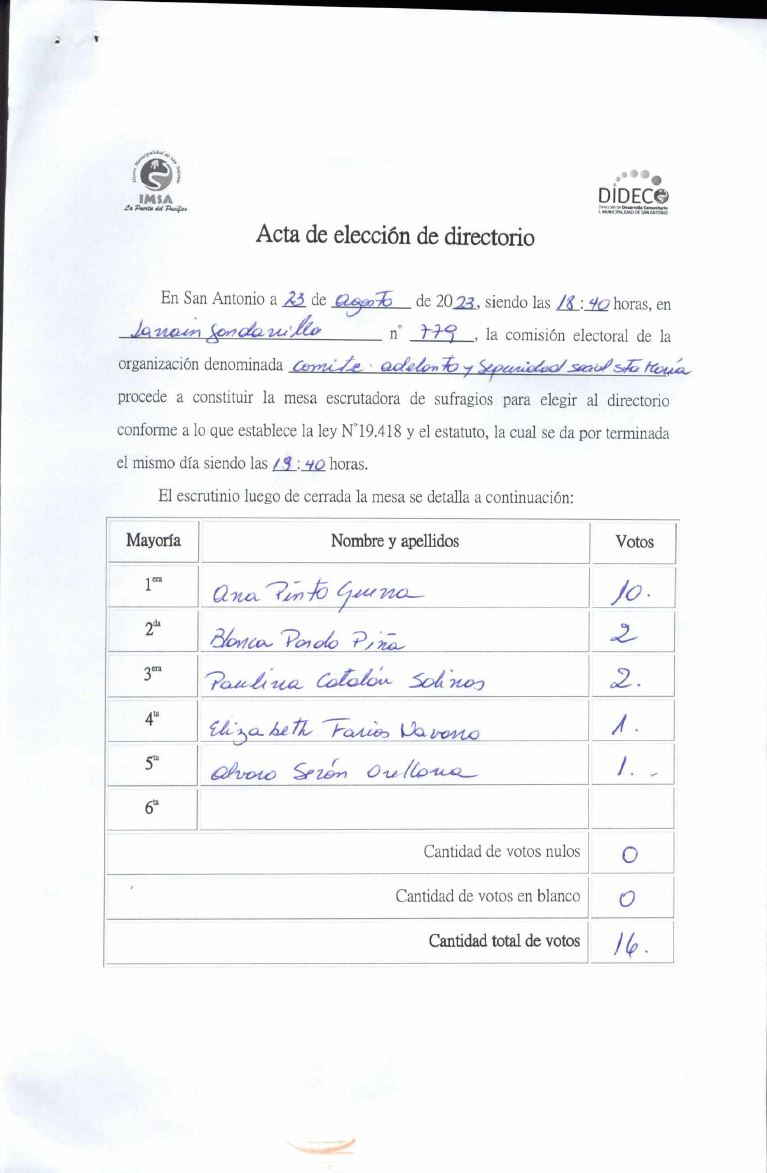 IMSA
La Puerta del Pacífico
DIDECO
Dirección de Desarrollo Comunitario
I. MUNICIPALIDAD DE SAN ANTONIO
Acta de elección de directorio
En San Antonio a 23 de Agosto de 2023, siendo las 18:40 horas, en
n° 779, la comisión electoral de la
organización denominada comite adelanto y Seguridad social sta María
procede a constituir la mesa escrutadora de sufragios para elegir al directorio
conforme a lo que establece la ley N°19.418 y el estatuto, la cual se da por terminada
el mismo día siendo las 19:40 horas.
El escrutinio luego de cerrada la mesa se detalla a continuación:
Mayoría Nombre y apellidos Votos
1era Ana Pinto Guerra 10.
2da Blanca Pardo Piña 2
3era Paulina Catalán Salinas 2.
4ta Elizabeth Farias Navarro 1.
5ta Alvaro Serón Orellana 1. -
6ta
Cantidad de votos nulos 0
Cantidad de votos en blanco 0
Cantidad total de votos 16.